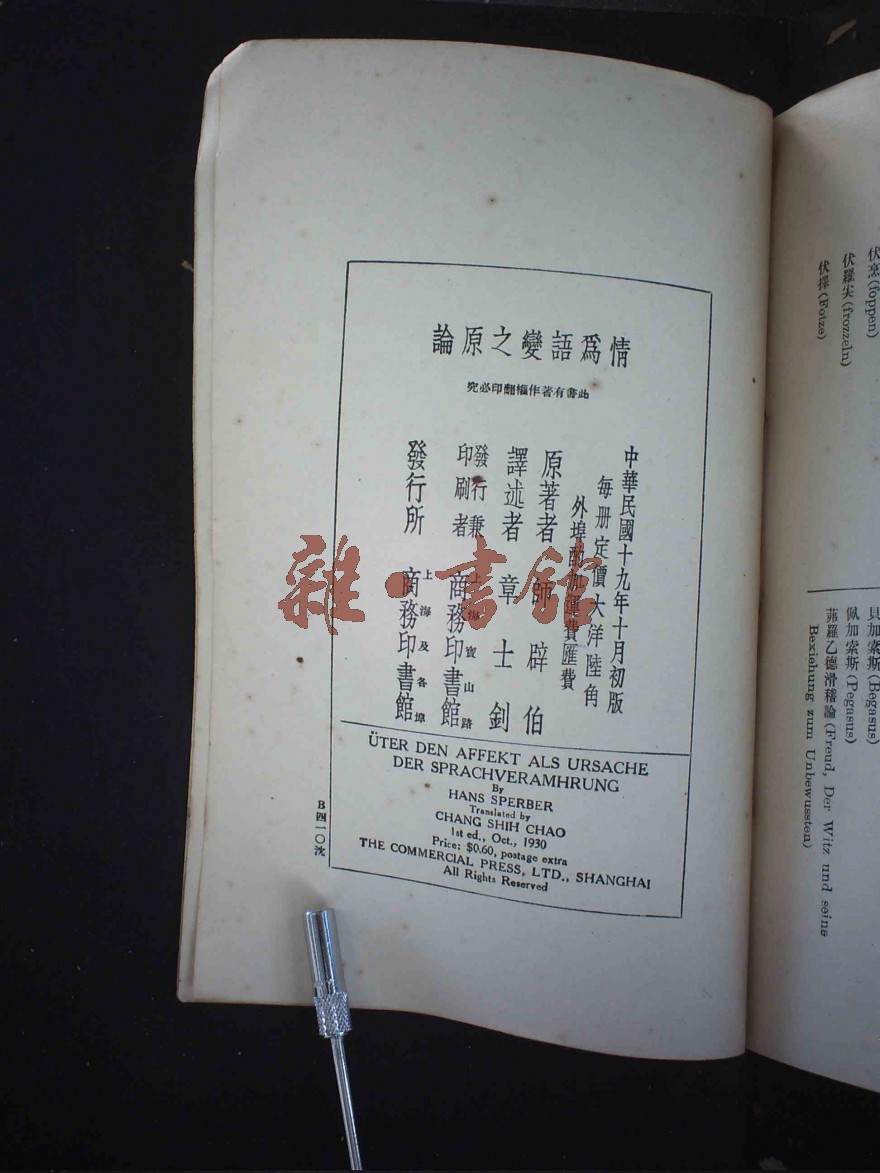 情爲語變之原論
此書有著作權翻印必究
中華民國十九年十月初版
每册定價大洋陸角
外埠酌加運費匯費
原著者 師辟伯
譯述者 章士釗
發行兼印刷者 上海寶山路 商務印書館
發行所 上海及各埠 商務印書館
ÜTER DEN AFFEKT ALS URSACHE
DER SPRACHVERAMHRUNG
By
HANS SPERBER
Translated by
CHANG SHIH CHAO
1st ed., Oct., 1930
Price: $0.60, postage extra
THE COMMERCIAL PRESS, LTD., SHANGHAI
All Rights Reserved
B四一〇沈
雜·書館
伏烹(foppen)
伏羅尖(frozzeln)
伏擇(Fotze)
貝加索斯(Begasus)
佩加索斯(Pegasus)
茀羅乙德滑稽論(Freud, Der Witz und seine
Bexiehung zum Unbewussten)